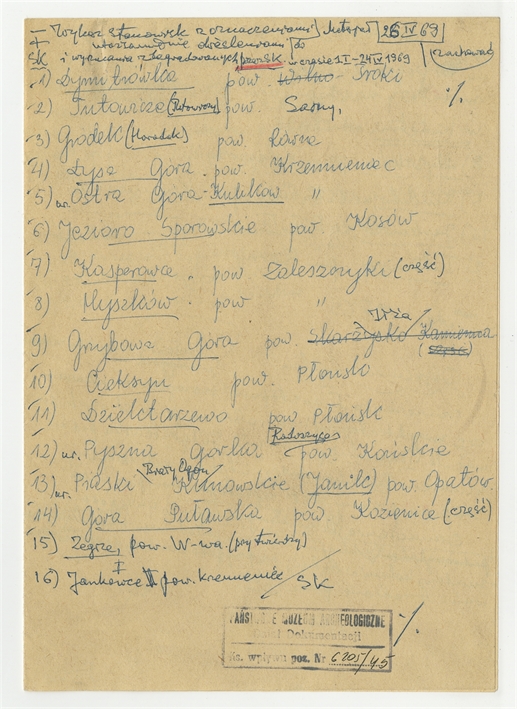 — Wykaz stanowisk z oznaczeniami
+ 26 IV 69
SK i wyznania zdegradowanych przez SK w czasie 1 I – 24 IV 1969
1) Dymitrówka pow. Wilno Troki
2) Tutowicze (Tutowicze) pow. Sarny,
3) Gródek (Horodok) pow. Równa
4) Łysa Góra pow. Krzemieniec
5) ur. Ostra Góra - Kulików "
6) Jezioro Sporowskie pow. Kosów
7) Kasperowce, pow. Zaleszczyki (część)
8) Myszków pow. "
9) Grzybowa Góra pow. Skarżysko Kamienna Iłża
(część)
10) Cieksyn pow. Płońsk
11) Dziektarzewo pow Płońsk
12) ur. Pyszna Górka Radoszyce pow. Końskie
13) ur. Piaski Brzozy Klimowskie (Janik) pow. Opatów.
14) Góra Puławska pow Kozienice (część)
15) Zegrze, pow. W-wa. (przy twierdzy)
16) Jankowce I II pow. Krzemieniec / SK
PAŃSTWOWE MUZEUM ARCHEOLOGICZNE
Dział Dokumentacji
Ks. wpływu poz. Nr 6205/45